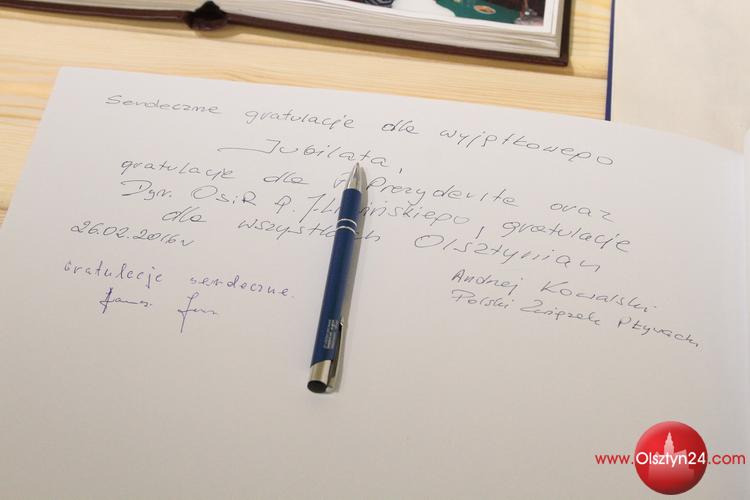 Serdeczne gratulacje dla wyjątkowego
Jubilata,
gratulacje dla P. Prezydenta oraz
Dyr. OSiR, gratulacje
dla wszystkich Olsztynian
26.02.2016r
Andrzej Kowalski
Polski Związek Pływacki
Gratulacje serdeczne.
www.Olsztyn24.com